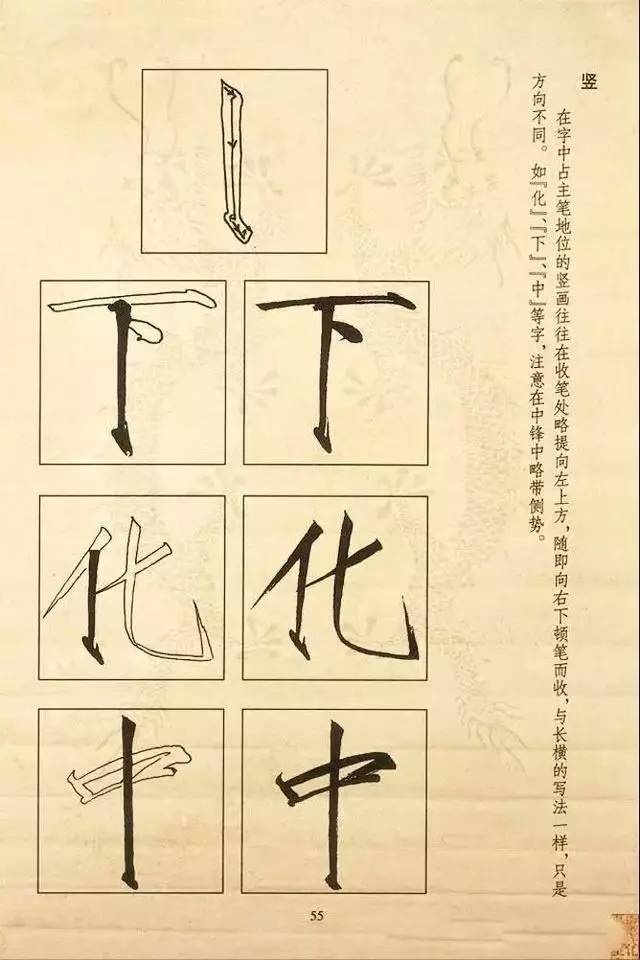 竖
在字中占主笔地位的竖画往往在收笔处略提向左上方，随即向右下顿笔而收，与长横的写法一样，只是
方向不同。如『化』、『下』、『中』等字，注意在中锋中略带侧势。
下 下
化 化
中 中
55